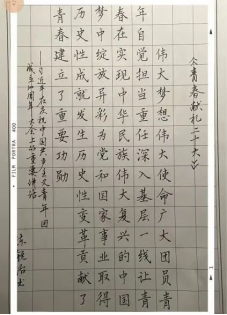 《青春献礼二十大》
伟大梦想伟大使命广大团员青
年自觉担当重任深入基层一线让青
春在实现中华民族伟大复兴的中国
梦中绽放异彩为党和国家事业取得
历史性成就发生历史性变革贡献了
青春建立了重要功勋
——习近平在庆祝中国共产主义青年团
成立100周年大会上的重要讲话
FILM PORTRA 400